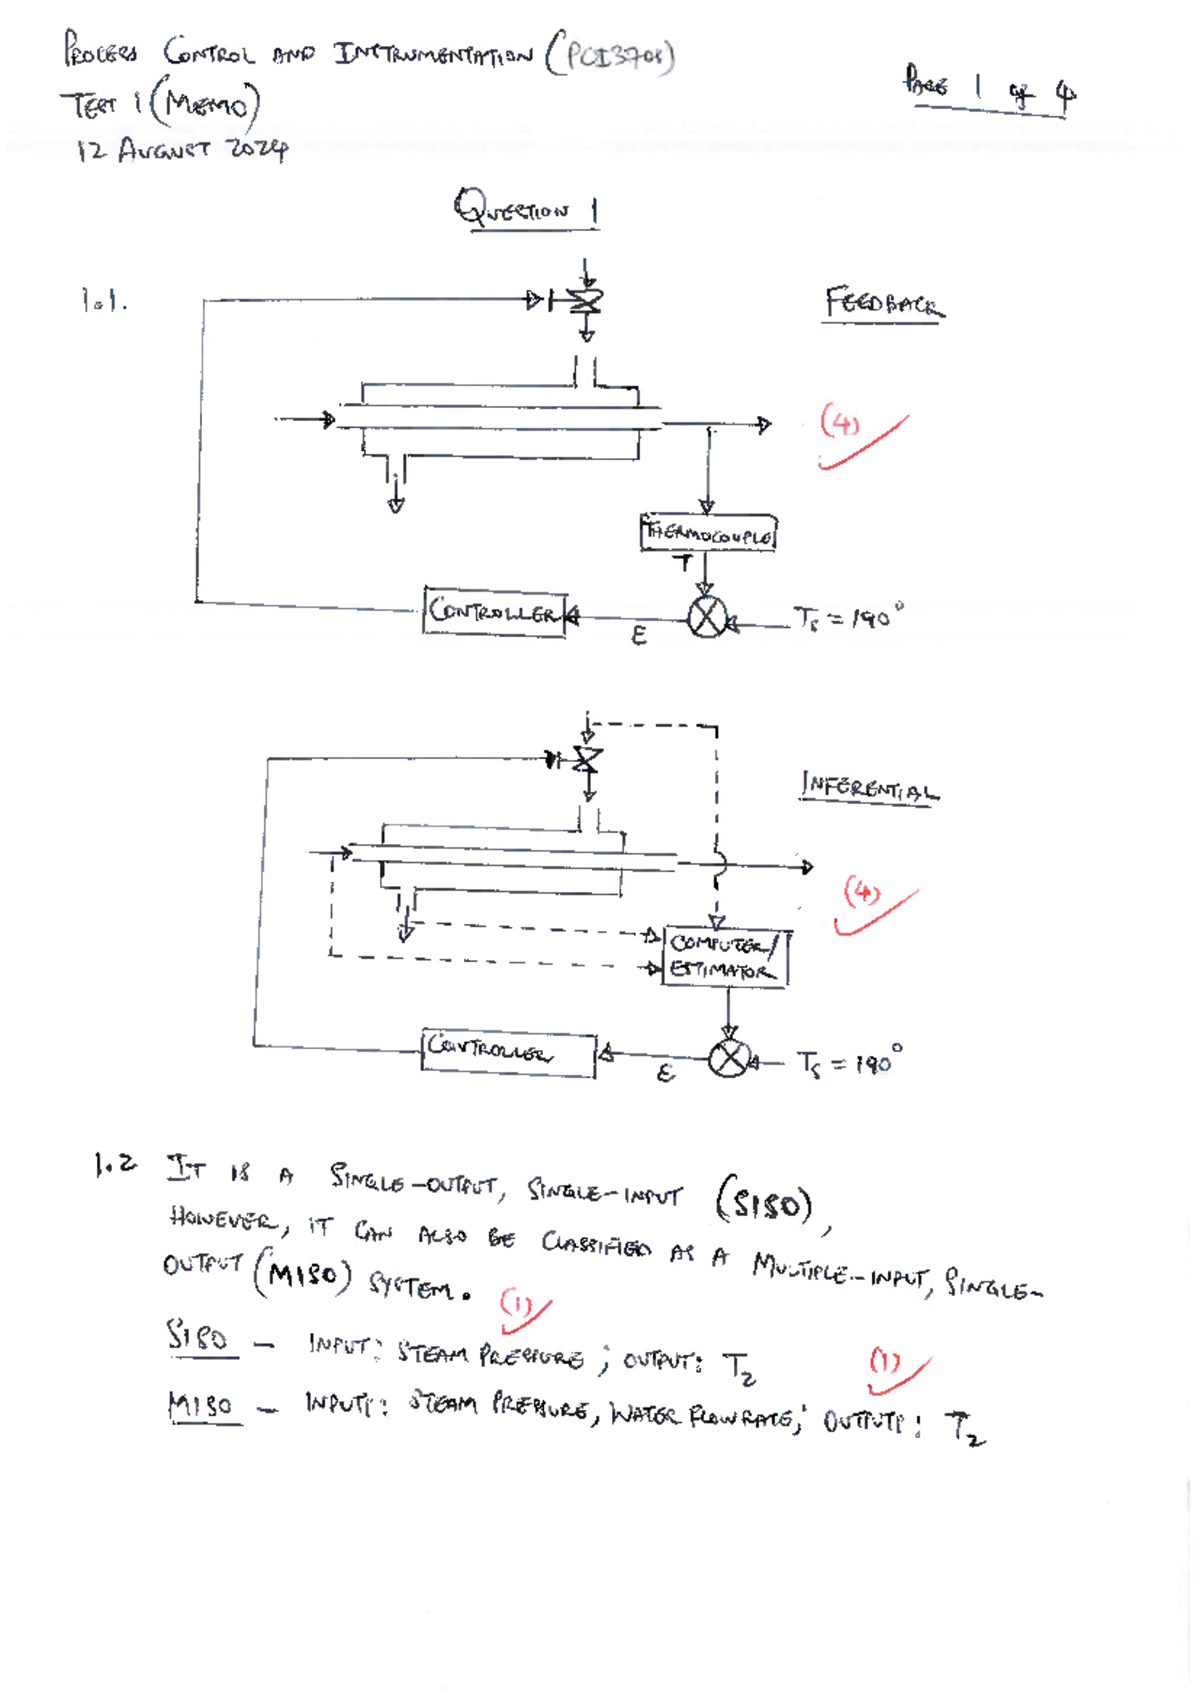 PROCESS CONTROL AND INSTRUMENTATION (PCI3708)
TEST 1 (MEMO)
PAGE 1 of 4
12 AUGUST 2024
QUESTION 1
1.1.
FEEDBACK
(4)
THERMOCOUPLE
T
CONTROLLER
E
Ts = 190°
INFERENTIAL
(4)
COMPUTER/
ESTIMATOR
CONTROLLER
E
Ts = 190°
1.2 IT IS A SINGLE-OUTPUT, SINGLE-INPUT (SISO),
HOWEVER, IT CAN ALSO BE CLASSIFIED AS A MULTIPLE-INPUT, SINGLE-
OUTPUT (MISO) SYSTEM.
(1)
SISO - INPUT: STEAM PRESSURE; OUTPUT: T2
(1)
MISO - INPUTS: STEAM PRESSURE, WATER FLOWRATE; OUTPUTS: T2